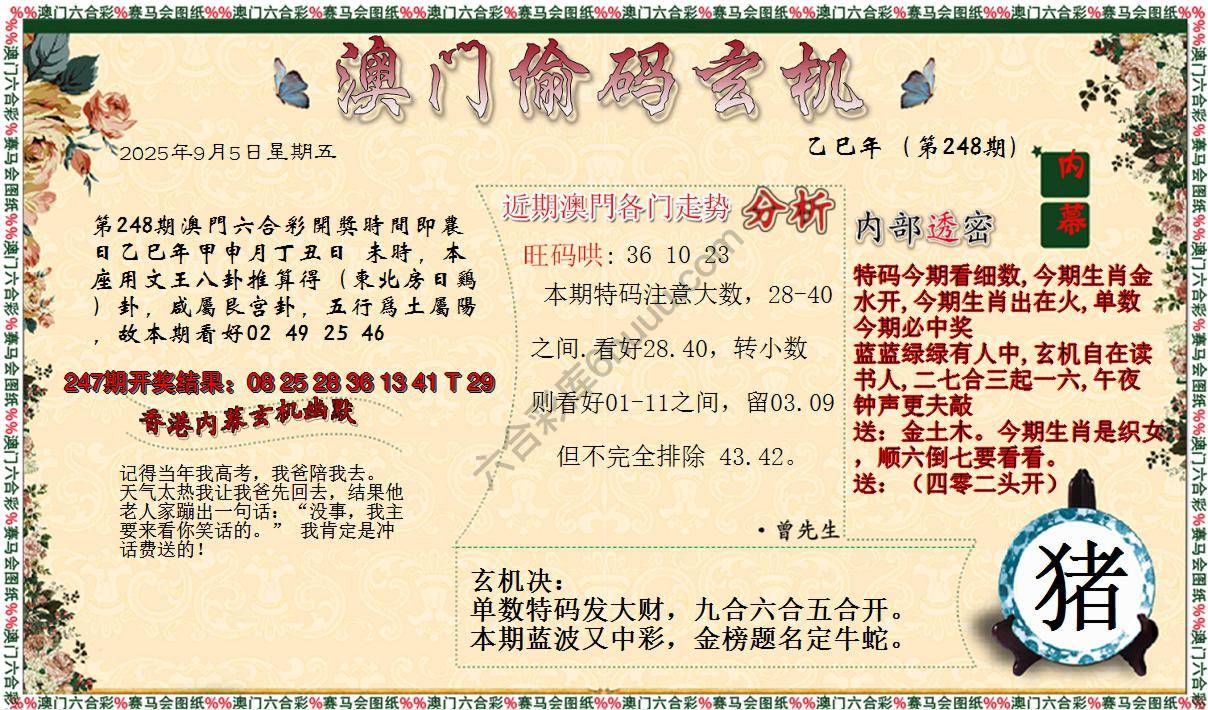 %%澳门六合彩%赛马会图纸%%澳门六合彩%赛马会图纸%%澳门六合彩%赛马会图纸%%澳门六合彩%赛马会图纸%%澳门六合彩%赛马会图纸%%澳门六合彩%赛马会图纸%%
澳门偷码玄机
2025年9月5日星期五
乙巳年（第248期）
内幕
第248期澳門六合彩開獎時間即農
日乙巳年甲申月丁丑日 未時，本
座用文王八卦推算得（東北房日鷄
）卦，咸屬艮宫卦，五行爲土屬陽
，故本期看好02 49 25 46
247期开奖结果：08 25 28 36 13 41 T 29
香港内幕玄机幽默
记得当年我高考，我爸陪我去。
天气太热我让我爸先回去，结果他
老人家蹦出一句话：“没事，我主
要来看你笑话的。” 我肯定是冲
话费送的！
近期澳門各门走势 分析
旺码哄: 36 10 23
本期特码注意大数，28-40
之间.看好28.40，转小数
则看好01-11之间，留03.09
但不完全排除 43.42。
·曾先生
内部透密
特码今期看细数,今期生肖金
水开,今期生肖出在火,单数
今期必中奖
蓝蓝绿绿有人中,玄机自在读
书人,二七合三起一六,午夜
钟声更夫敲
送：金土木。今期生肖是织女
，顺六倒七要看看。
送：（四零二头开）
玄机决：
单数特码发大财，九合六合五合开。
本期蓝波又中彩，金榜题名定牛蛇。
猪
六合彩库6huuu.com